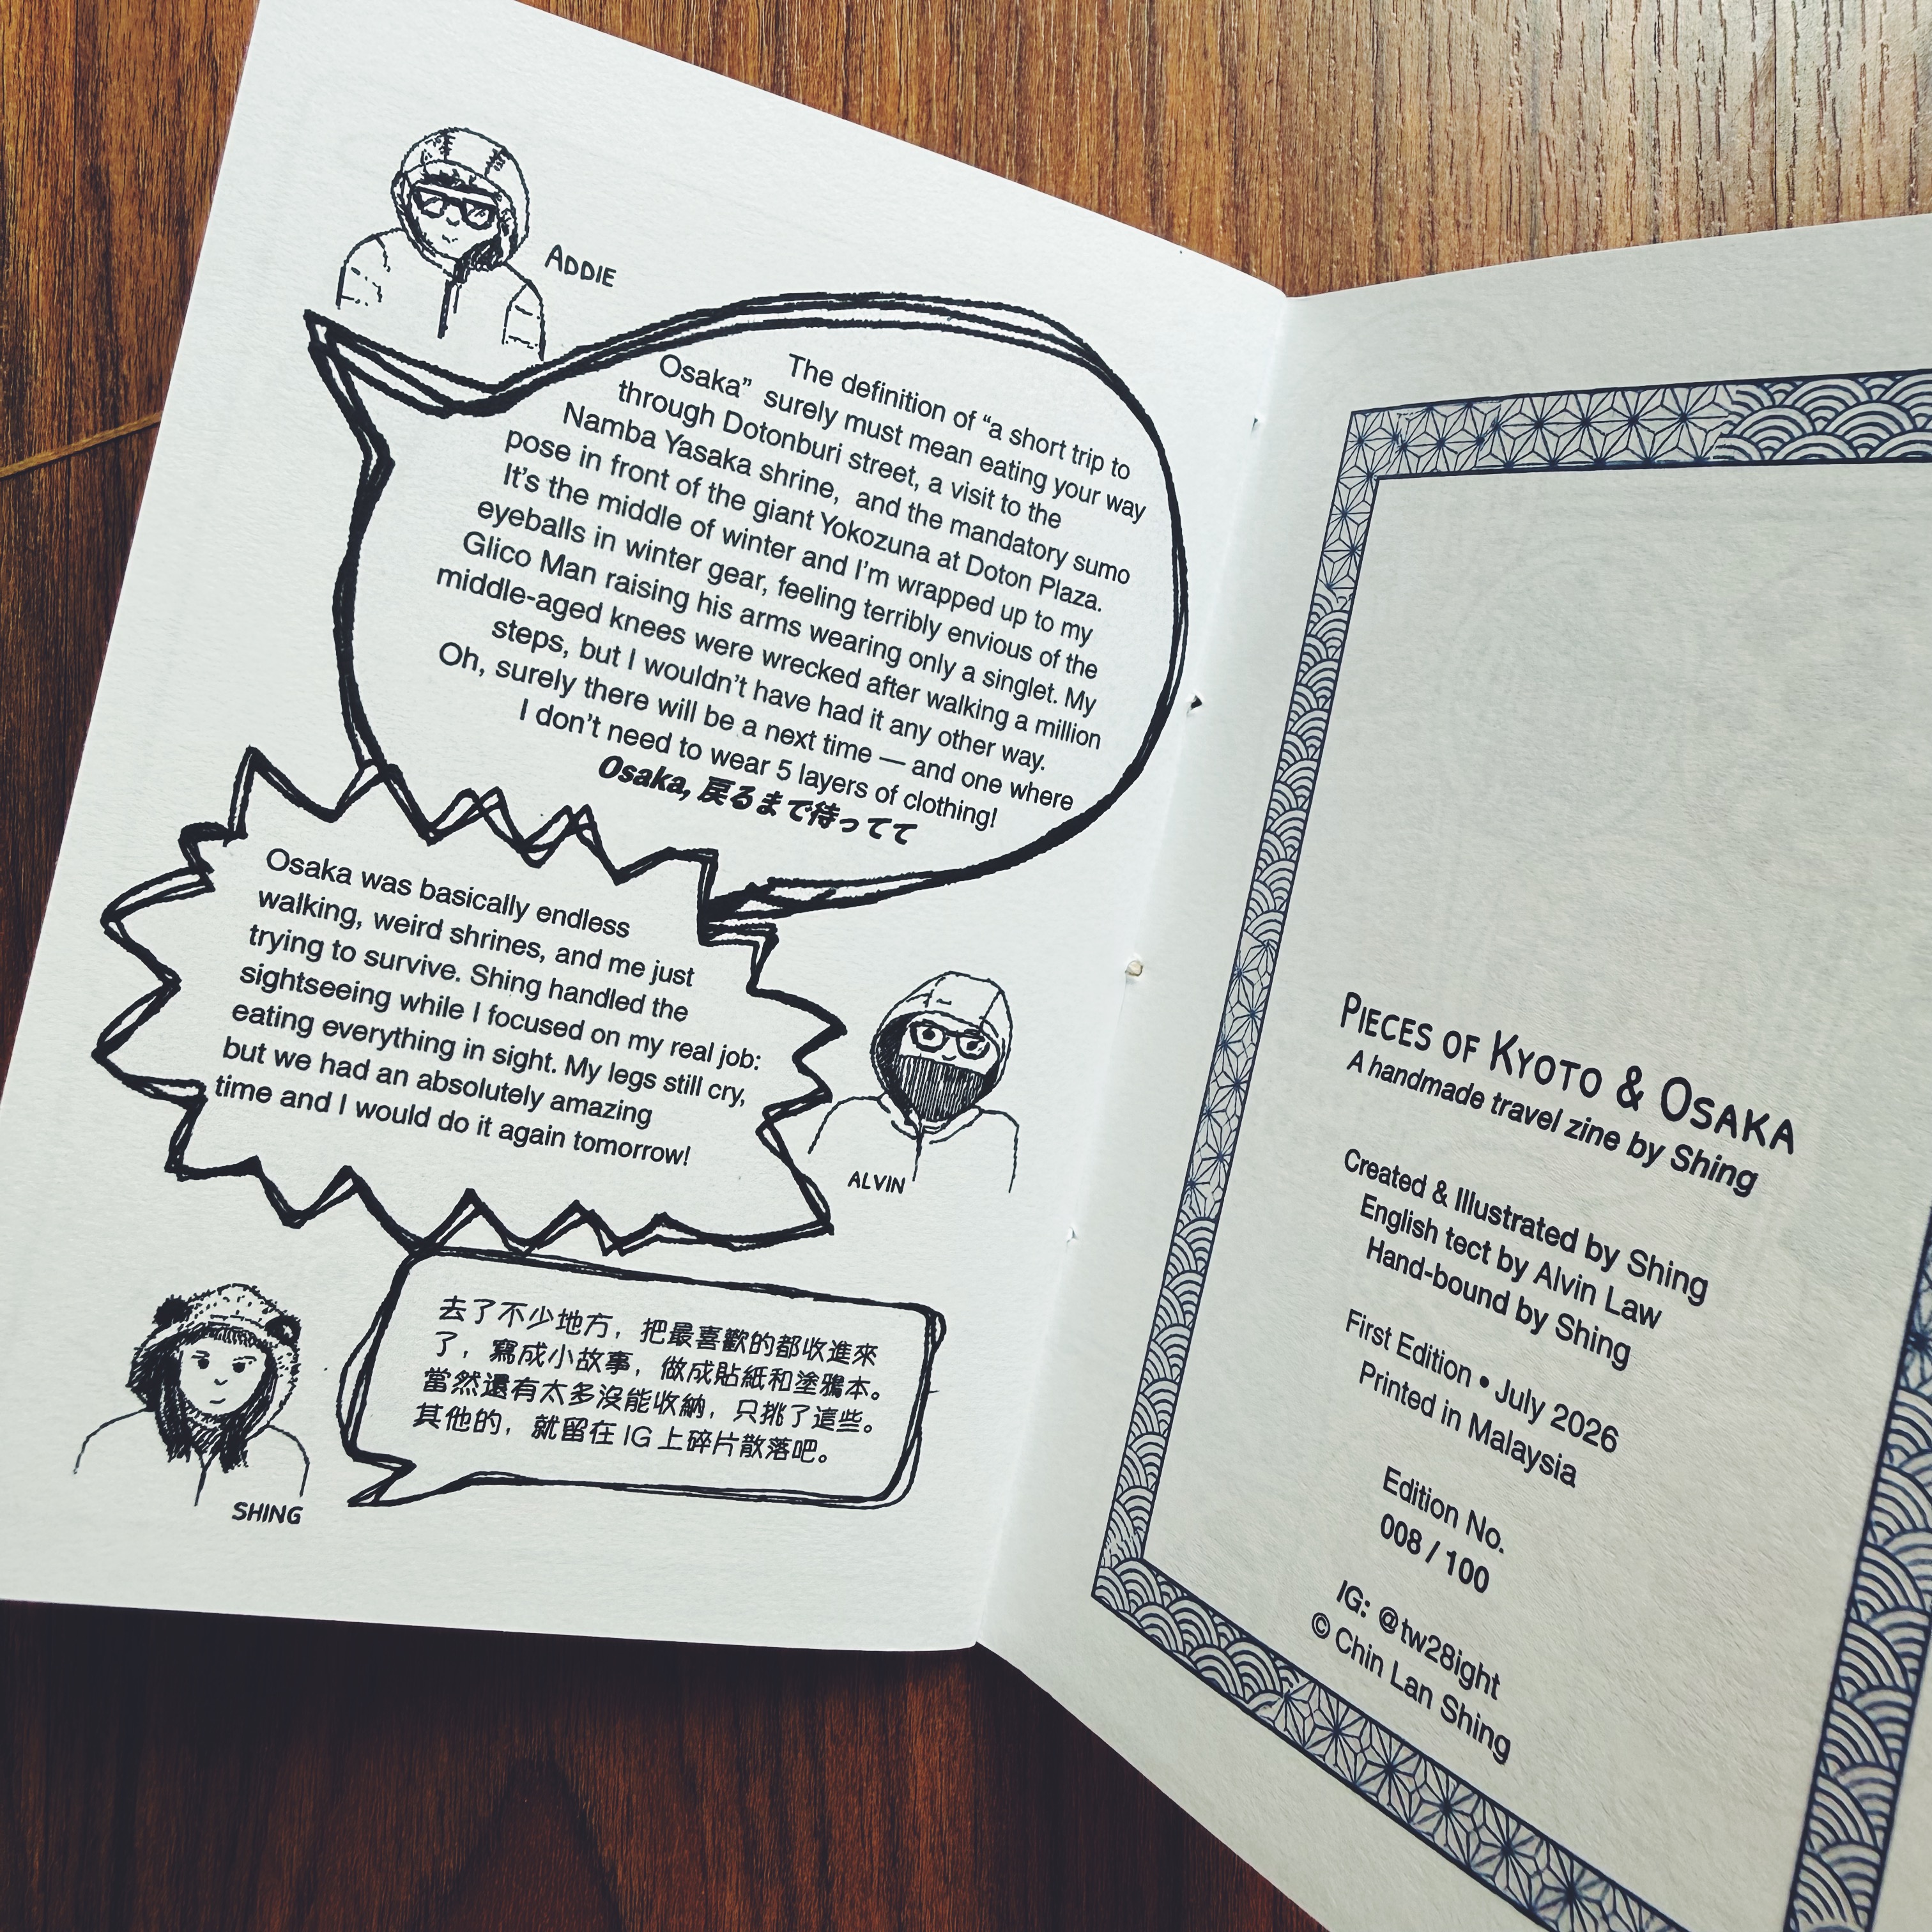 ADDIE
The definition of “a short trip to
Osaka” surely must mean eating your way
through Dotonburi street, a visit to the
Namba Yasaka shrine, and the mandatory sumo
pose in front of the giant Yokozuna at Doton Plaza.
It’s the middle of winter and I’m wrapped up to my
eyeballs in winter gear, feeling terribly envious of the
Glico Man raising his arms wearing only a singlet. My
middle-aged knees were wrecked after walking a million
steps, but I wouldn’t have had it any other way.
Oh, surely there will be a next time — and one where
I don’t need to wear 5 layers of clothing!
Osaka, 戻るまで待ってて
Osaka was basically endless
walking, weird shrines, and me just
trying to survive. Shing handled the
sightseeing while I focused on my real job:
eating everything in sight. My legs still cry,
but we had an absolutely amazing
time and I would do it again tomorrow!
ALVIN
去了不少地方，把最喜歡的都收進來
了，寫成小故事，做成貼紙和塗鴉本。
當然還有太多沒能收納，只挑了這些。
其他的，就留在 IG 上碎片散落吧。
SHING
PIECES OF KYOTO & OSAKA
A handmade travel zine by Shing
Created & Illustrated by Shing
English tect by Alvin Law
Hand-bound by Shing
First Edition • July 2026
Printed in Malaysia
Edition No.
008 / 100
IG: @tw28ight
© Chin Lan Shing